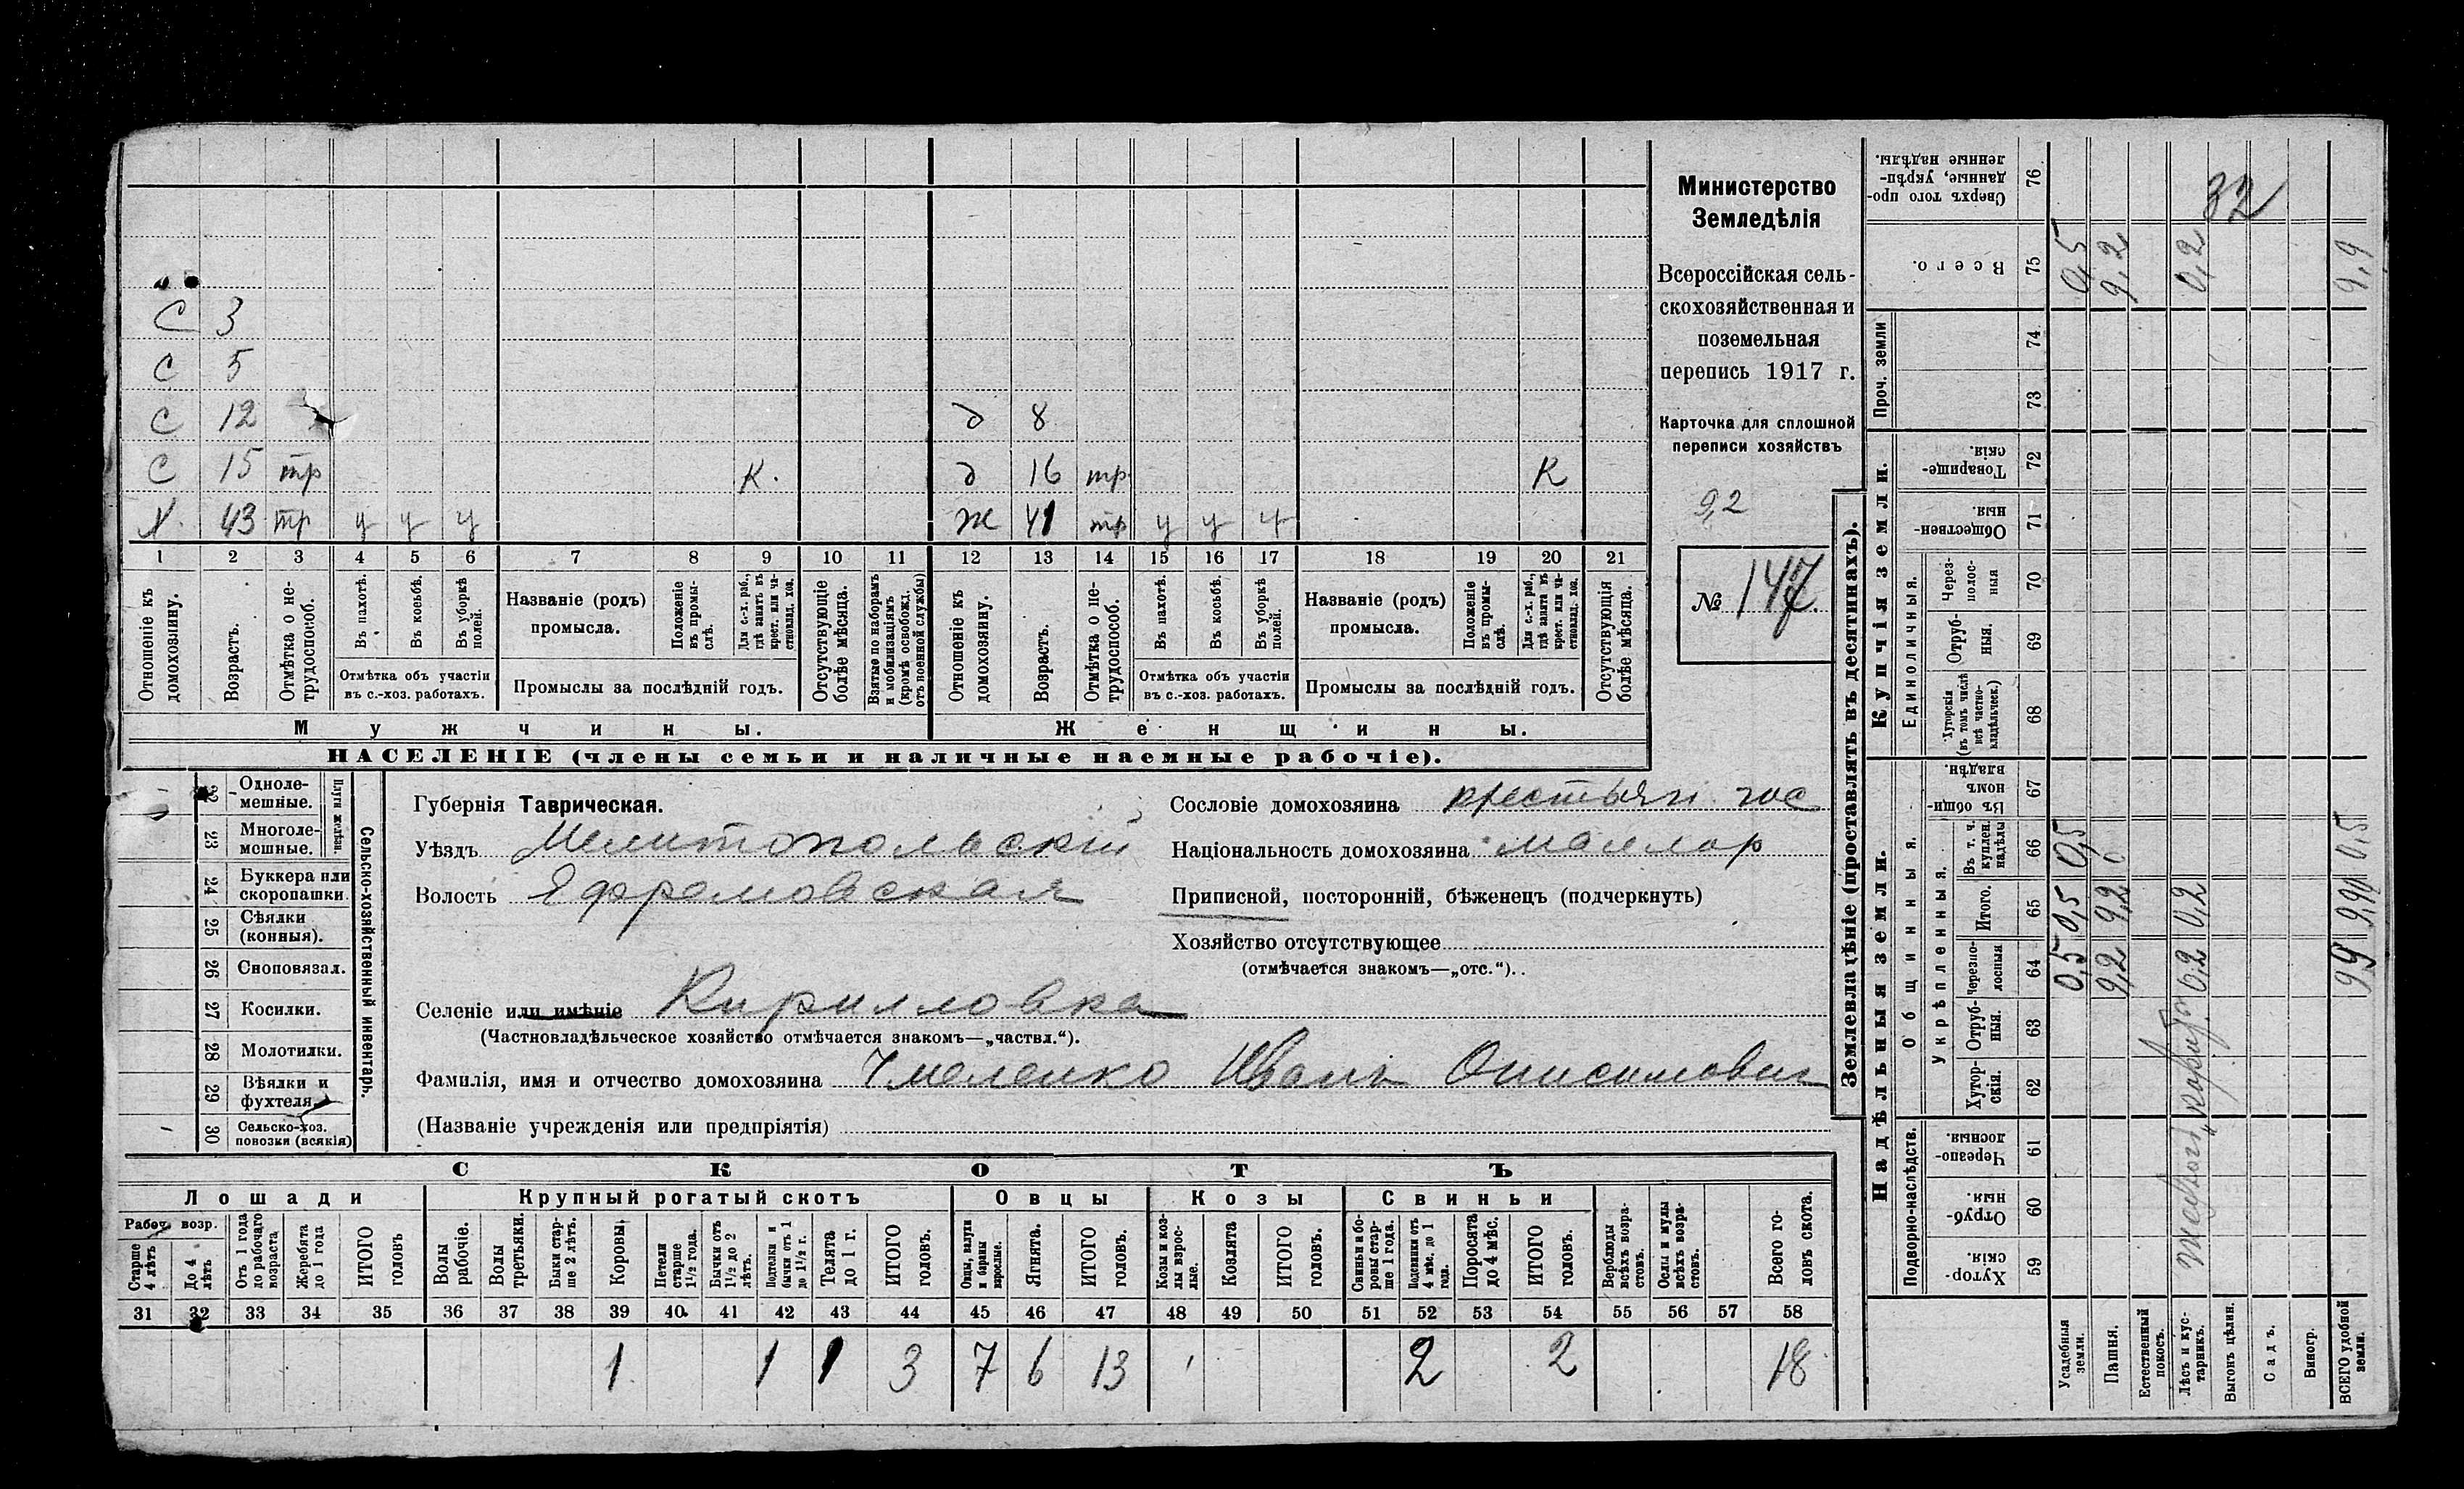 С 3
С 5
С 12 д 8
С 15 тр К. д 16 тр К
Х. 43 тр у у у ж 41 тр у у у
1 2 3 4 5 6 7 8 9 10 11 12 13 14 15 16 17 18 19 20 21
Отношеніе къ домохозяину.
Возрастъ.
Отмѣтка о нетрудоспособ.
Въ пахотѣ.
Въ косьбѣ.
Въ уборкѣ полей.
Отмѣтка объ участіи въ с.-хоз. работахъ.
Названіе (родъ) промысла.
Положеніе въ промыслѣ.
Для с.-х. раб., гдѣ занятъ въ крест. или частновлад. хоз.
Промыслы за послѣдній годъ.
Отсутствующіе болѣе мѣсяца.
Взятые по наборамъ и мобилизаціямъ (кромѣ освобожд. отъ военной службы)
Отношеніе къ домохозяину.
Возрастъ.
Отмѣтка о нетрудоспособ.
Въ пахотѣ.
Въ косьбѣ.
Въ уборкѣ полей.
Отмѣтка объ участіи въ с.-хоз. работахъ.
Названіе (родъ) промысла.
Положеніе въ промыслѣ.
Для с.-х. раб., гдѣ занята въ крест. или частновлад. хоз.
Промыслы за послѣдній годъ.
Отсутствующія болѣе мѣсяца.
Мужчины.
Женщины.
НАСЕЛЕНІЕ (члены семьи и наличные наемные рабочіе).
Министерство
Земледѣлія
Всероссійская сель-
скохозяйственная и
поземельная
перепись 1917 г.
Карточка для сплошной
переписи хозяйствъ
9,2
№ 147
22 Одноле-мешные.
23 Многоле-мешные.
Плуги желѣзн.
24 Буккера или скоропашки.
25 Сѣялки (конныя).
26 Сноповязал.
27 Косилки.
28 Молотилки.
29 Вѣялки и фухтеля.
30 Сельско-хоз. повозки (всякія)
Сельско-хозяйственный инвентарь.
Губернія Таврическая.
Уѣздъ Мелитопольскій
Волость Ефремовская
Селеніе или имѣніе Кирилловка
(Частновладѣльческое хозяйство отмѣчается знакомъ—„частвл.“).
Фамилія, имя и отчество домохозяина Иванъ Онисимович
(Названіе учрежденія или предпріятія)
Сословіе домохозяина крестьян. гос
Національность домохозяина маллор
Приписной, посторонній, бѣженецъ (подчеркнуть)
Хозяйство отсутствующее
(отмѣчается знакомъ—„отс.“).
СКОТЪ
Лошади
Крупный рогатый скотъ
Овцы
Козы
Свиньи
Рабоч. возр.
Старше 4 лѣтъ
До 4 лѣтъ
Отъ 1 года до рабочаго возраста
Жеребята до 1 года
ИТОГО головъ
Волы рабочіе.
Волы третьяки.
Быки старше 2 лѣтъ.
Коровы
Нетели старше 1½ года.
Бычки отъ 1½ до 2 лѣтъ.
Подтелки и бычки отъ 1 до 1½ г.
Телята до 1 г.
ИТОГО головъ.
Овцы, валухи и бараны взрослые.
Ягнята.
ИТОГО головъ.
Козы и козлы взрослые.
Козлята
ИТОГО головъ.
Свиньи и боровы старше 1 года.
Подсвинки отъ 4 мѣс. до 1 года.
Поросята до 4 мѣс.
ИТОГО головъ.
Верблюды всѣхъ возрастовъ.
Ослы и мулы всѣхъ возрастовъ.
Всего головъ скота.
31 32 33 34 35 36 37 38 39 40 41 42 43 44 45 46 47 48 49 50 51 52 53 54 55 56 57 58
1 1 1 3 7 6 13 2 2 18
Землевладѣніе (проставлять въ десятинахъ).
Надѣльныя земли.
Купчія земли.
Проч. земли
Подворно-наслѣдств.
Общинныя.
Укрѣпленныя.
Единоличныя.
59 Хуторскія.
60 Отрубныя.
61 Черезполосныя.
62 Хуторскія.
63 Отрубныя.
64 Черезполосныя
65 Итого.
66 Въ т. ч. куплен. надѣлы
67 Въ общинномъ владѣн.
68 Хуторскія (въ томъ числѣ всѣ частновладѣльческ.)
69 Отрубныя.
70 Черезполосныя
71 Общественныя.
72 Товарищескія.
73
74
75 Всего.
76 Сверхъ того проданные, укрѣпленные надѣлы.
Усадебныя земли. 0,5 0,5 0,5 0,5
Пашня. 9,2 9,2 9,2
Естественный покосъ.
Лѣсъ и кустарникъ. 0,2 0,2 0,2
Выгонъ цѣлин. 32
Садъ.
Виногр.
ВСЕГО удобной земли. 9,9 9,90 0,5 9,9